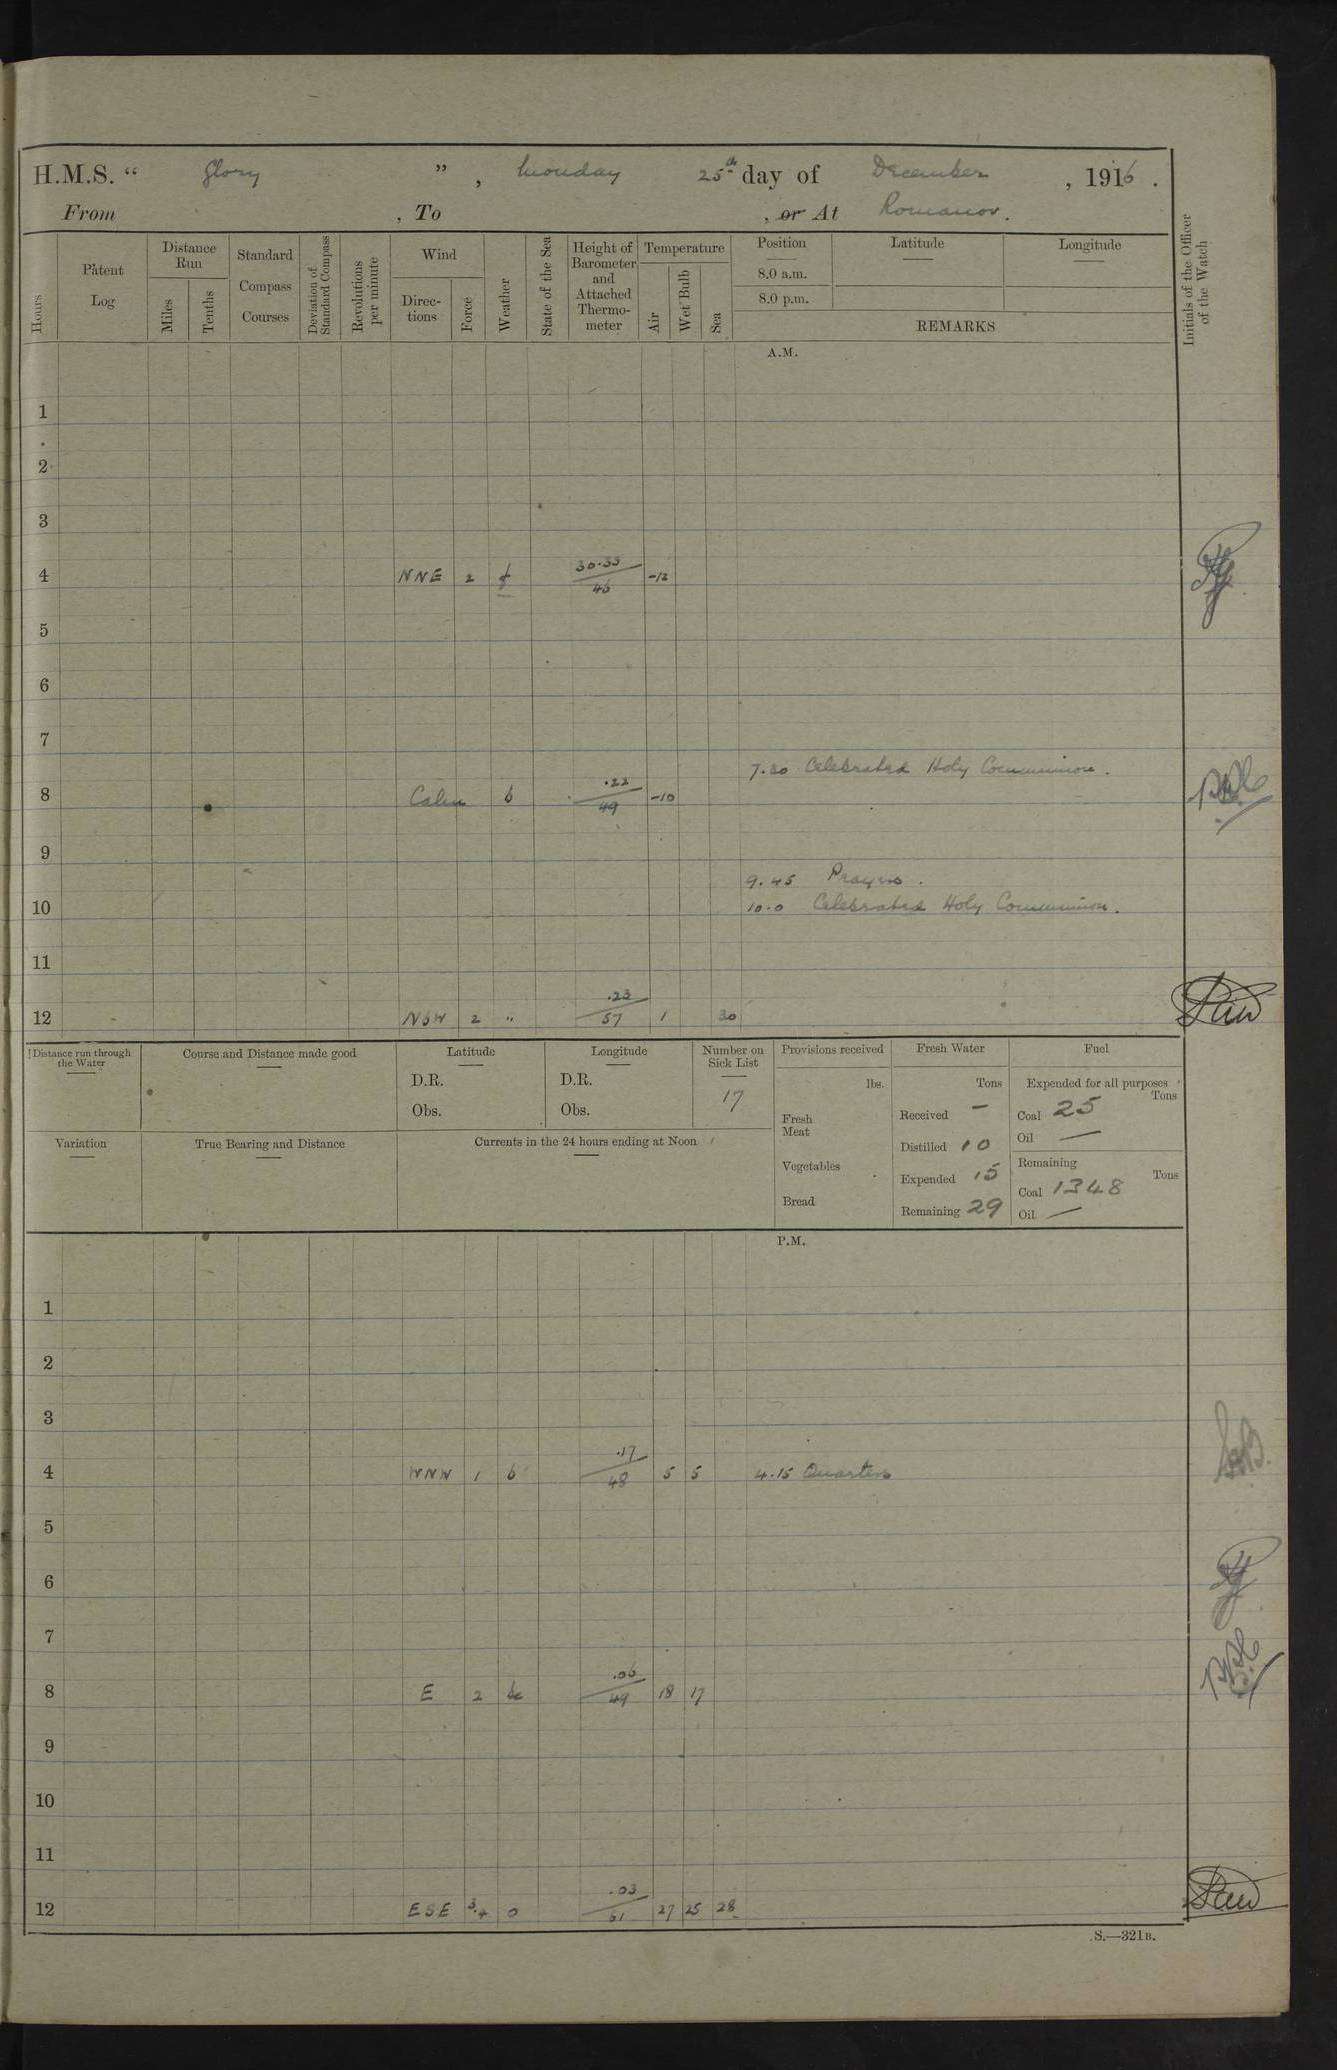 H.M.S. “ Glory ” , Monday 25th day of December , 1916 .
From , To , or At Romanov .
Hours
Patent Log
Distance Run
Miles
Tenths
Standard Compass Courses
Deviation of Standard Compass
Revolutions per minute
Wind
Directions
Force
Weather
State of the Sea
Height of Barometer and Attached Thermometer
Temperature
Air
Wet Bulb
Sea
Position
8.0 a.m.
8.0 p.m.
Latitude
Longitude
REMARKS
Initials of the Officer of the Watch
A.M.
1
2
3
4 NNE 2 f 30.33 46 -12
5
6
7
7.30 Celebrated Holy Communion .
8 Calm b .22 49 -10
9
9.45 Prayers .
10 10.0 Celebrated Holy Communion .
11
12 NbW 2 " .23 57 1 30
Distance run through the Water
Course and Distance made good
Latitude
D.R.
Obs.
Longitude
D.R.
Obs.
Number on Sick List
17
Variation
True Bearing and Distance
Currents in the 24 hours ending at Noon
Provisions received
lbs.
Fresh Meat
Vegetables
Bread
Fresh Water
Tons
Received –
Distilled 10
Expended 15
Remaining 29
Fuel
Expended for all purposes
Tons
Coal 25
Oil —
Remaining
Tons
Coal 1348
Oil —
P.M.
1
2
3
4 WNW 1 b .17 48 5 5 4.15 Quarters
5
6
7
8 E 2 bc .06 49 18 17
9
10
11
12 ESE 3.4 o .03 61 27 25 28
S.—321B.